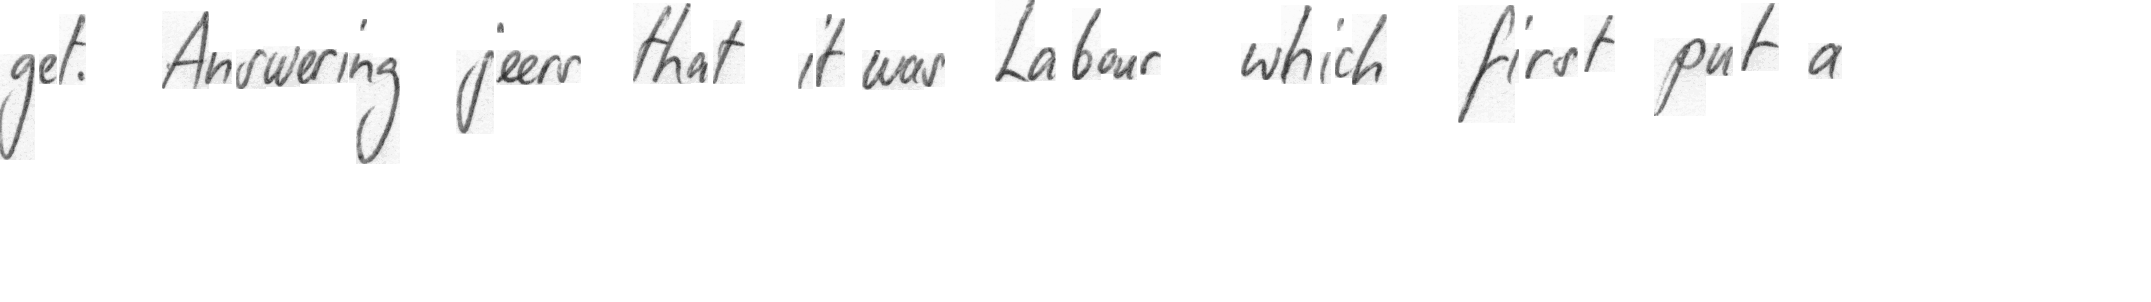 get. Answering jeers that it was Labour which first put a